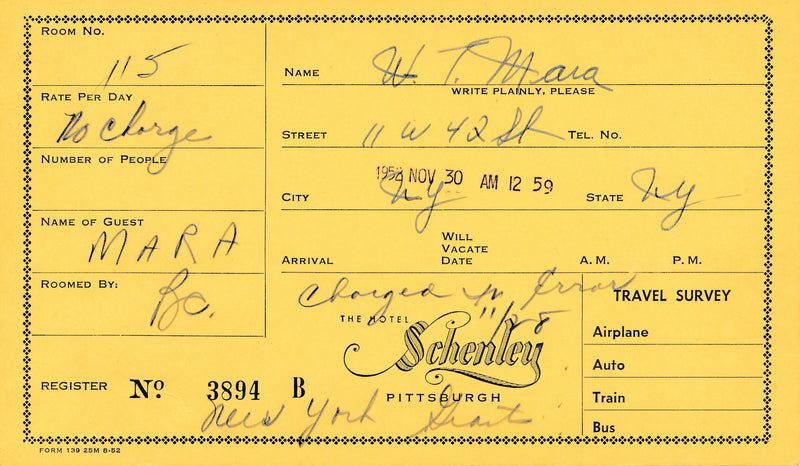 ROOM NO.
115
RATE PER DAY
No charge
NUMBER OF PEOPLE
NAME OF GUEST
MARA
ROOMED BY:
Bc.
NAME W. T. Mara
WRITE PLAINLY, PLEASE
STREET 11 W 42 St TEL. NO.
1952 NOV 30 AM 12 59
CITY NY STATE NY
ARRIVAL WILL VACATE DATE A.M. P.M.
Charged in Error
THE HOTEL
Schenley
PITTSBURGH
TRAVEL SURVEY
Airplane
Auto
Train
Bus
REGISTER No. 3894 B
New York Giants
FORM 139 25M 8-52